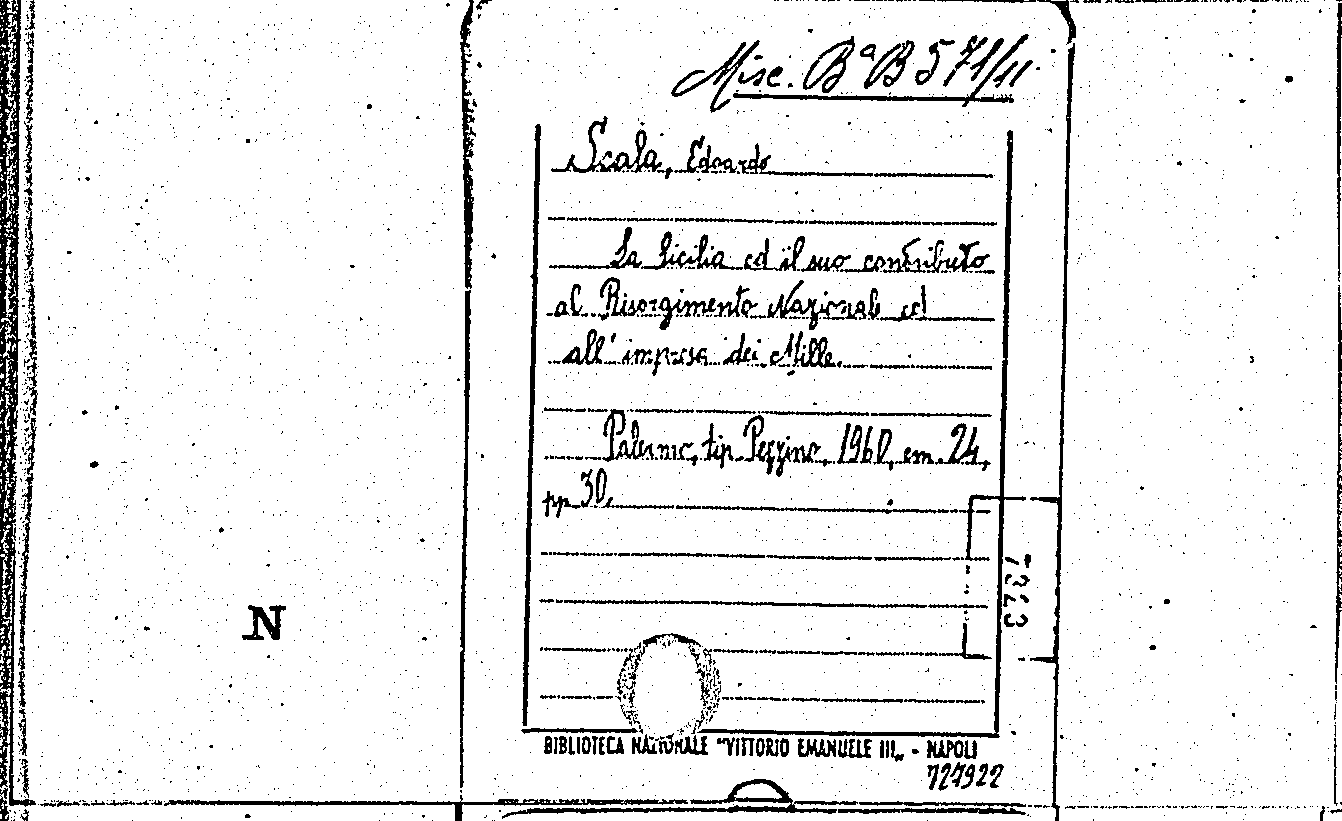 Misc. Bª B 571/11
Scala, Edoardo
La Sicilia ed il suo contributo
al Risorgimento Nazionale ed
all'impresa dei Mille.
Palermo, tip. Pezzino, 1960, cm. 24,
pp. 30.
7323
N
BIBLIOTECA NAZIONALE "VITTORIO EMANUELE III„ - NAPOLI
727922